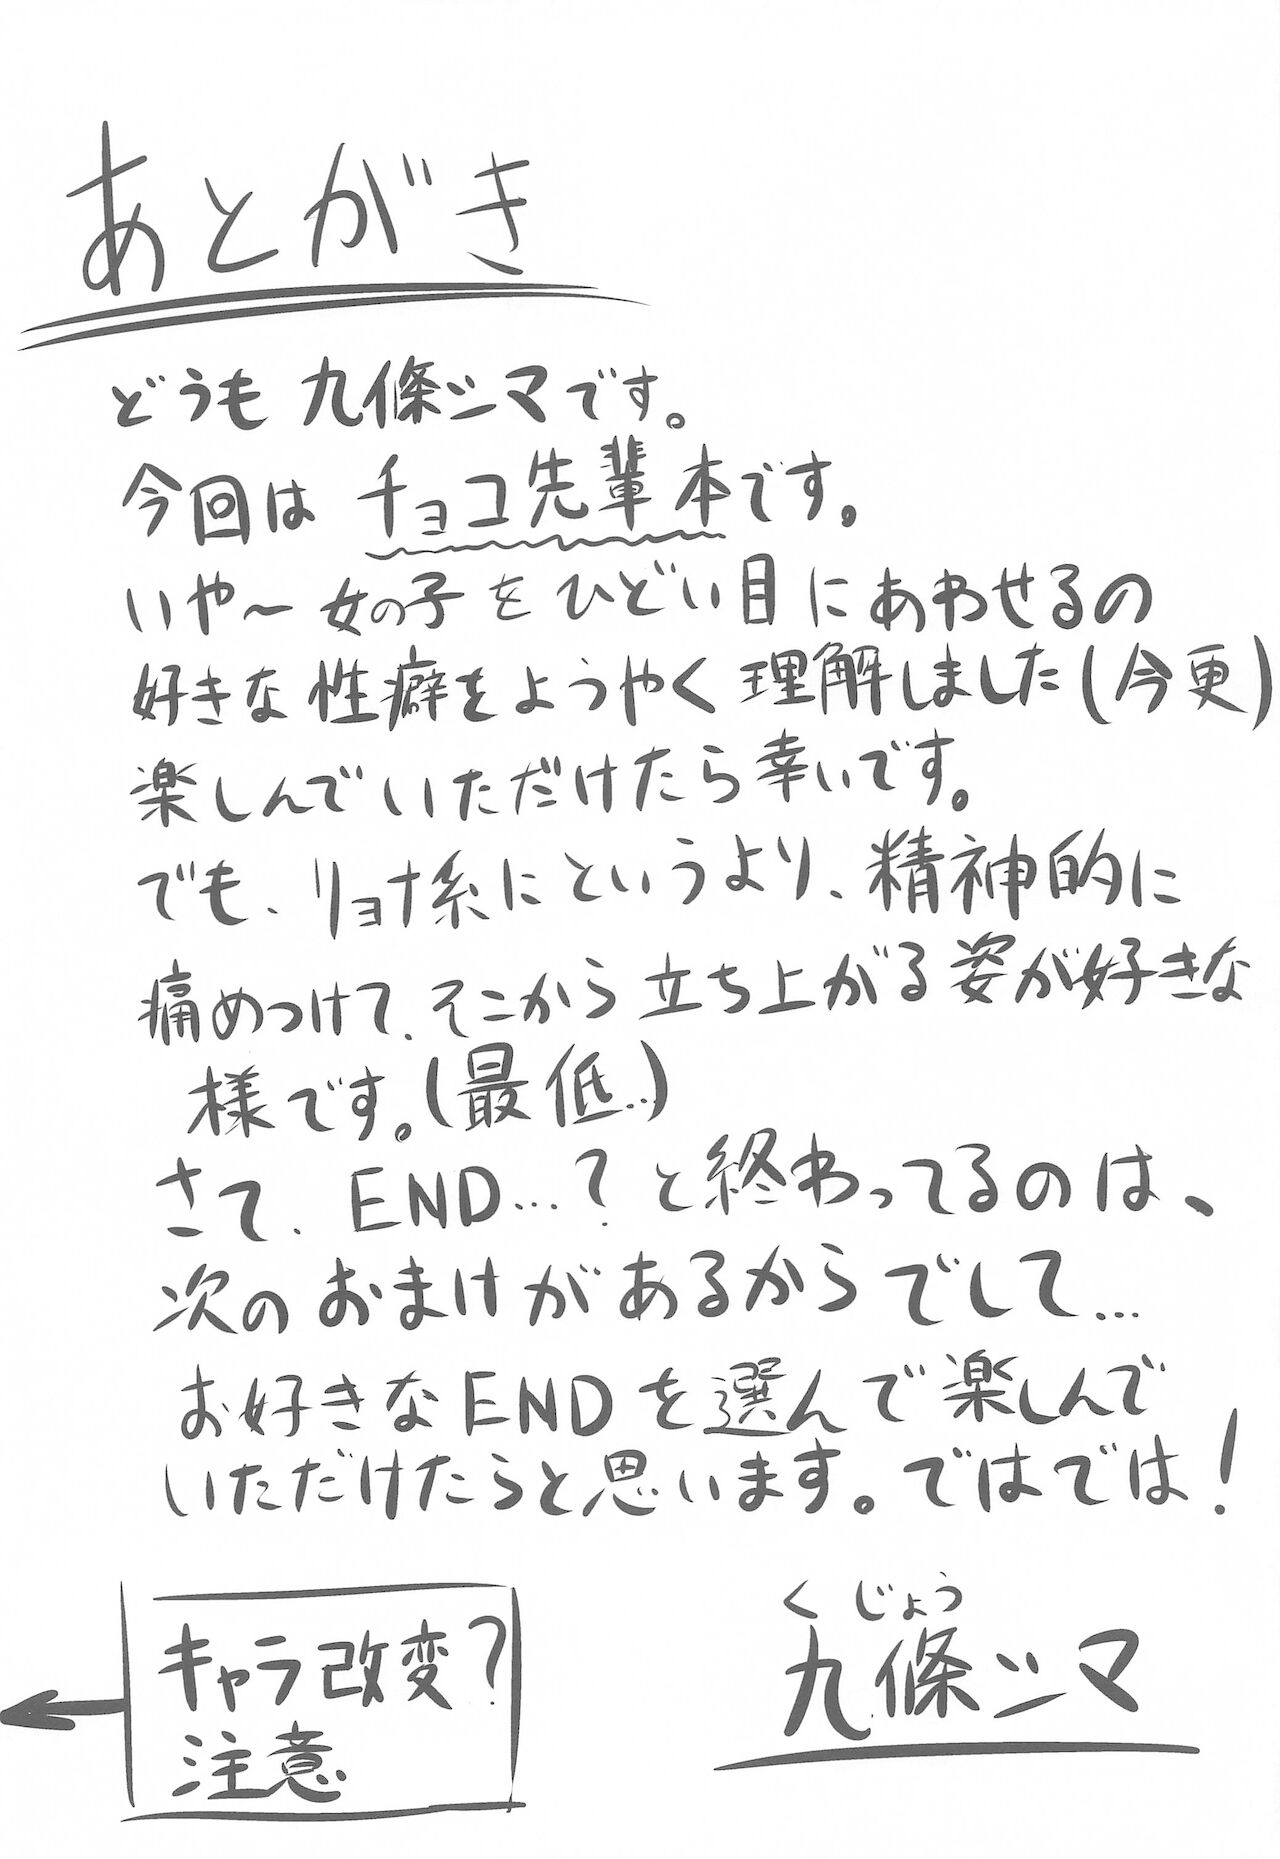 あとがき
どうも 九條シマです。
今回は チョコ先輩本です。
いや〜女の子をひどい目にあわせるの
好きな性癖をようやく理解しました(今更)
楽しんでいただけたら幸いです。
でも、リョナ系にというより、精神的に
痛めつけて、そこから立ち上がる姿が好きな
様です。(最低…)
さて、END…?と終わってるのは、
次のおまけがあるからでして…
お好きなENDを選んで楽しんで
いただけたらと思います。ではでは!
キャラ改変?
注意
くじょう
九條シマ